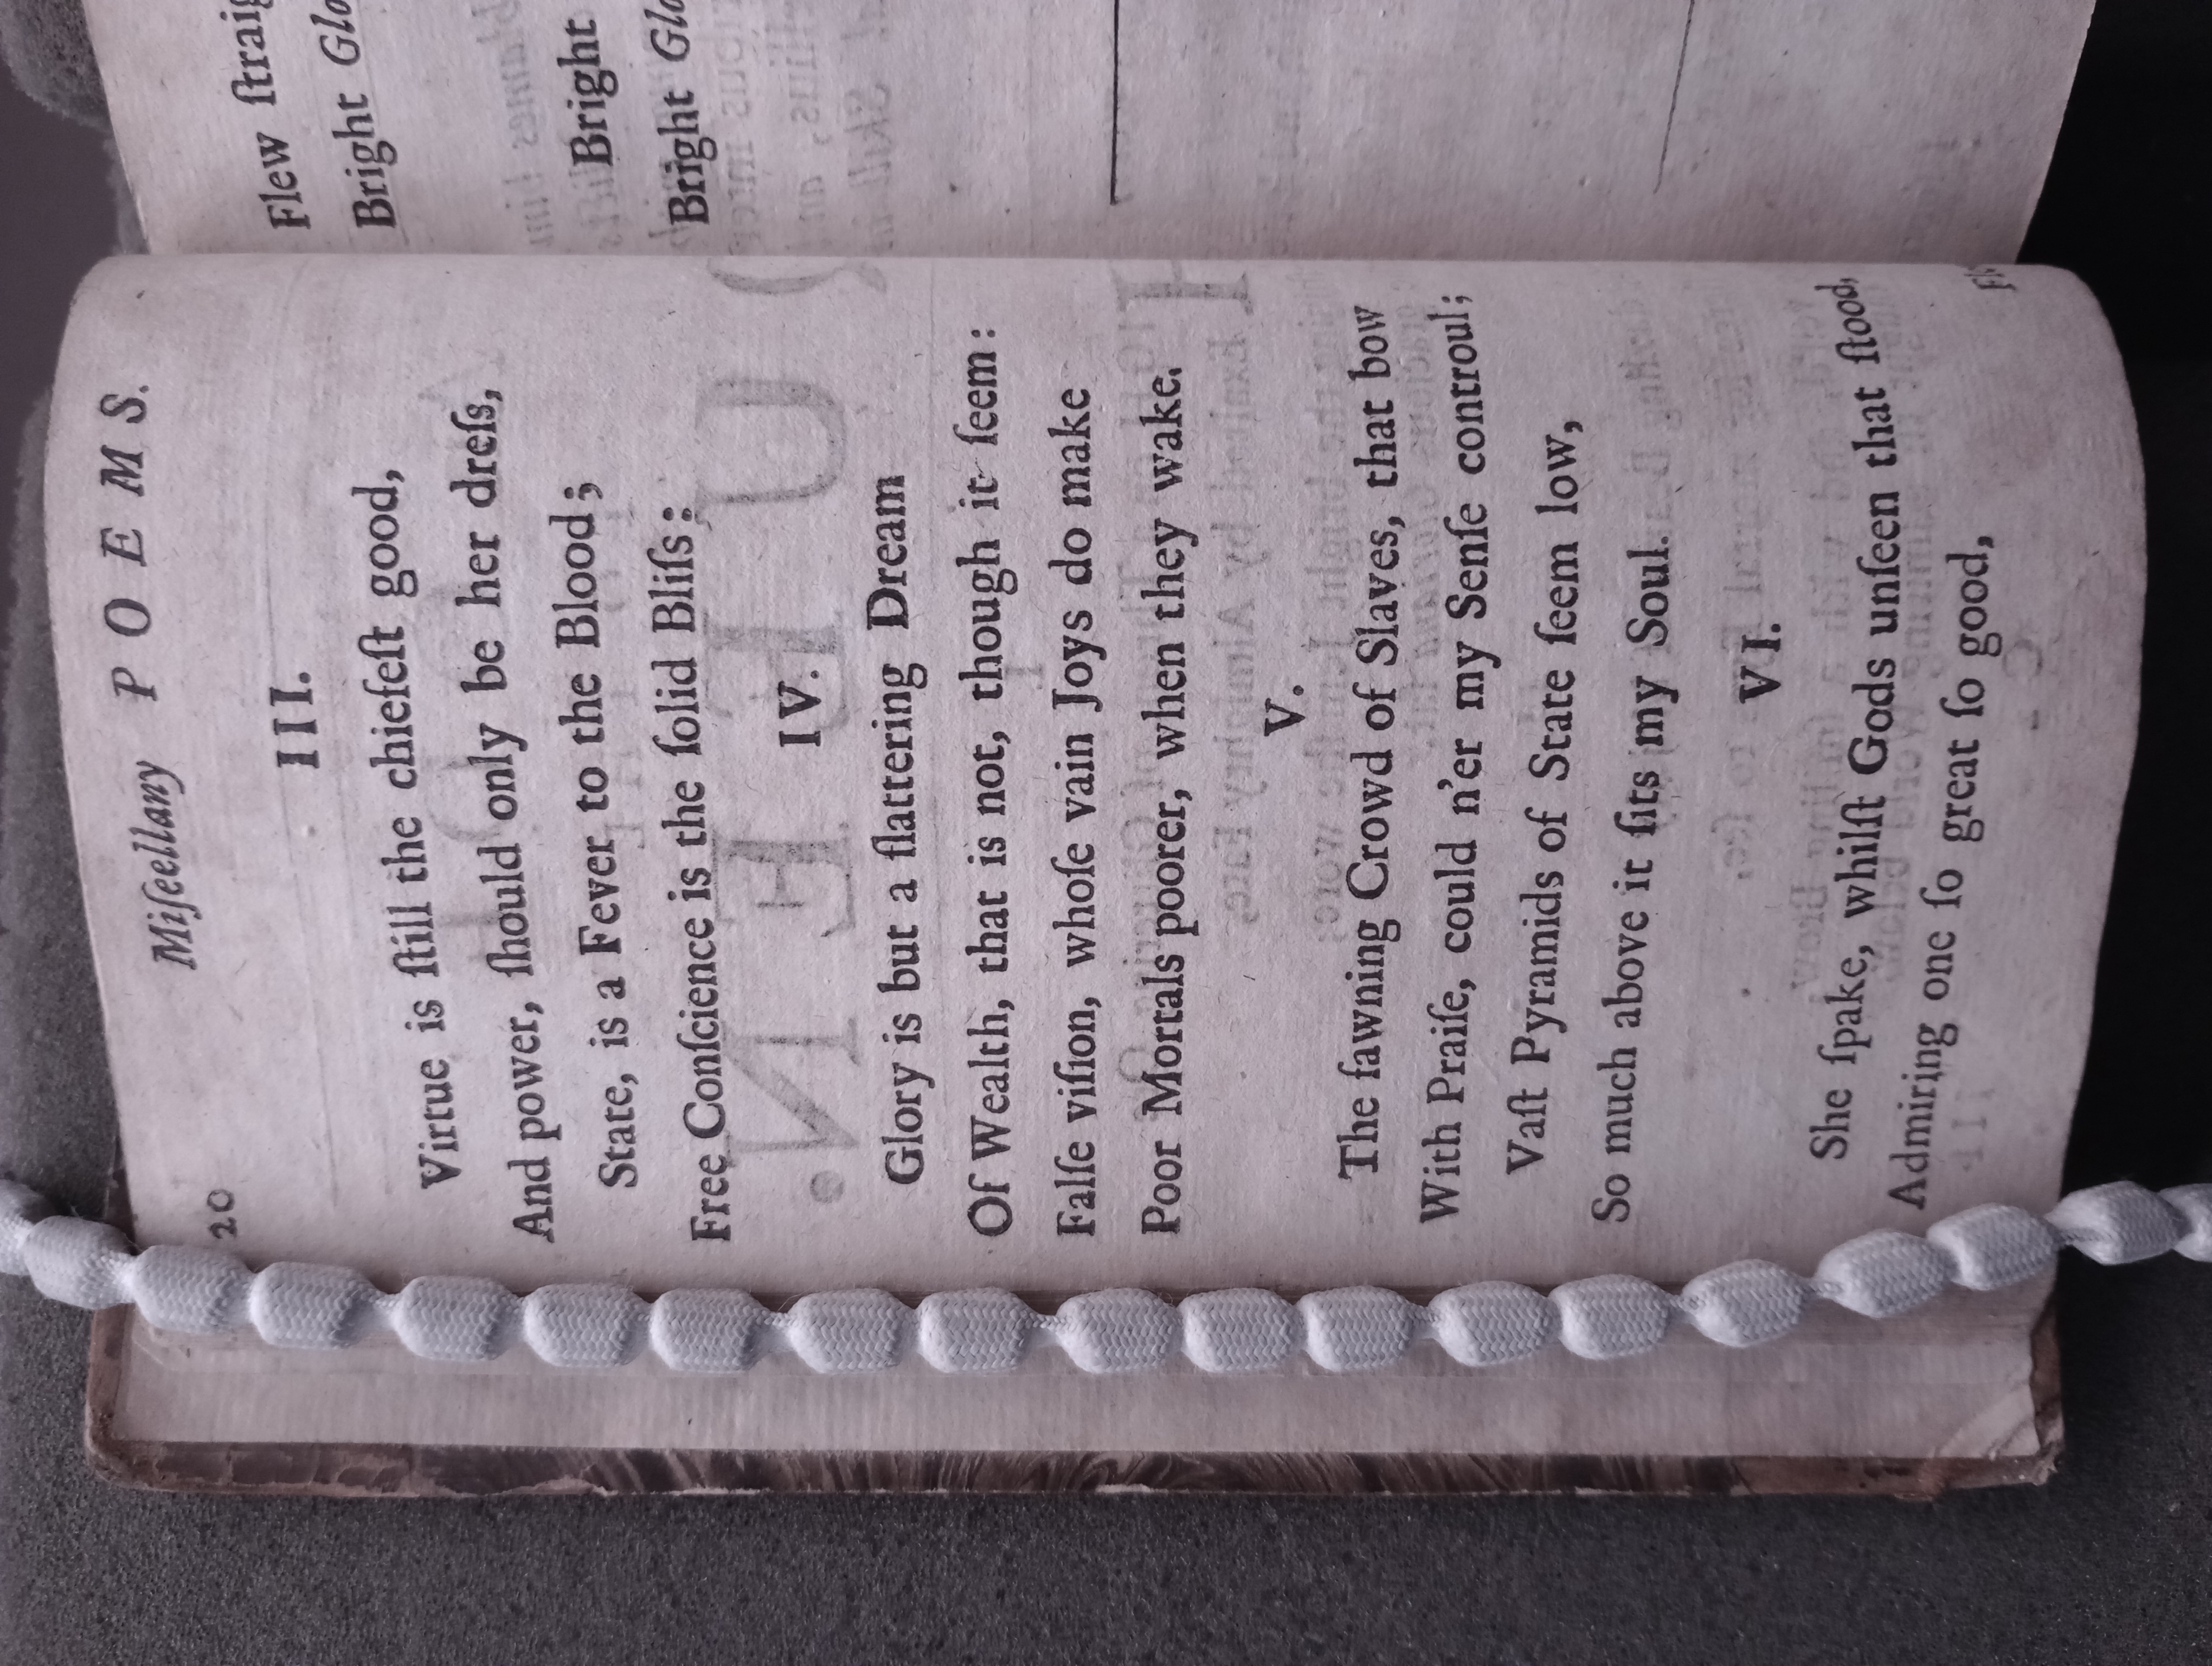 20 Miſcellany POEMS.
III.
Virtue is ſtill the chiefeſt good,
And power, ſhould only be her dreſs,
State, is a Fever to the Blood;
Free Conſcience is the ſolid Bliſs:
IV.
Glory is but a flattering Dream
Of Wealth, that is not, though it ſeem:
Falſe viſion, whoſe vain Joys do make
Poor Mortals poorer, when they wake.
V.
The fawning Crowd of Slaves, that bow
With Praiſe, could n'er my Senſe controul;
Vaſt Pyramids of State ſeem low,
So much above it ſits my Soul.
VI.
She ſpake, whilſt Gods unſeen that ſtood,
Admiring one ſo great ſo good,
Flew
Bright
Bright
Bright